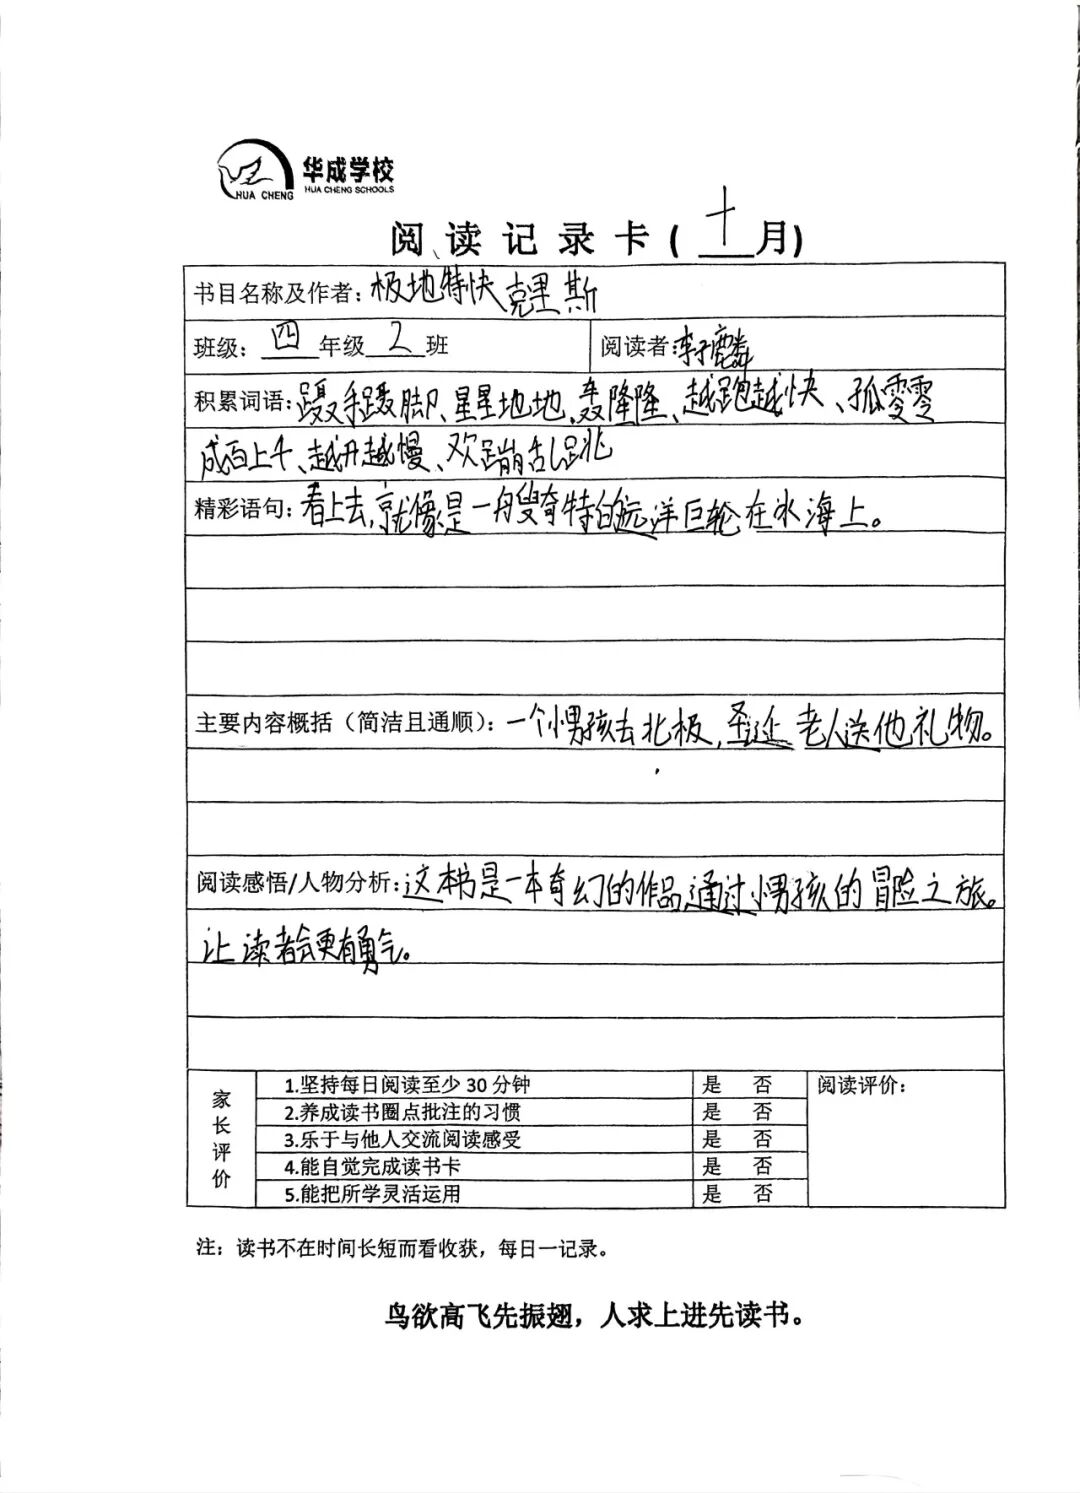 华成学校
HUA CHENG SCHOOLS
HUA CHENG
阅读记录卡(十月)
书目名称及作者：极地特快 克里斯
班级：四年级2班 阅读者：李子麟
积累词语：蹑手蹑脚、星星地地、轰隆隆、越跑越快、孤零零
成百上千、越升越慢、欢蹦乱跳
精彩语句：看上去,就像是一艘奇特的远洋巨轮在冰海上。
主要内容概括（简洁且通顺）：一个小男孩去北极,圣诞老人送他礼物。
阅读感悟/人物分析：这本书是一本奇幻的作品,通过小男孩的冒险之旅。
让读者会更有勇气。
家长评价
1.坚持每日阅读至少30分钟 是 否 阅读评价：
2.养成读书圈点批注的习惯 是 否
3.乐于与他人交流阅读感受 是 否
4.能自觉完成读书卡 是 否
5.能把所学灵活运用 是 否
注：读书不在时间长短而看收获，每日一记录。
鸟欲高飞先振翅，人求上进先读书。